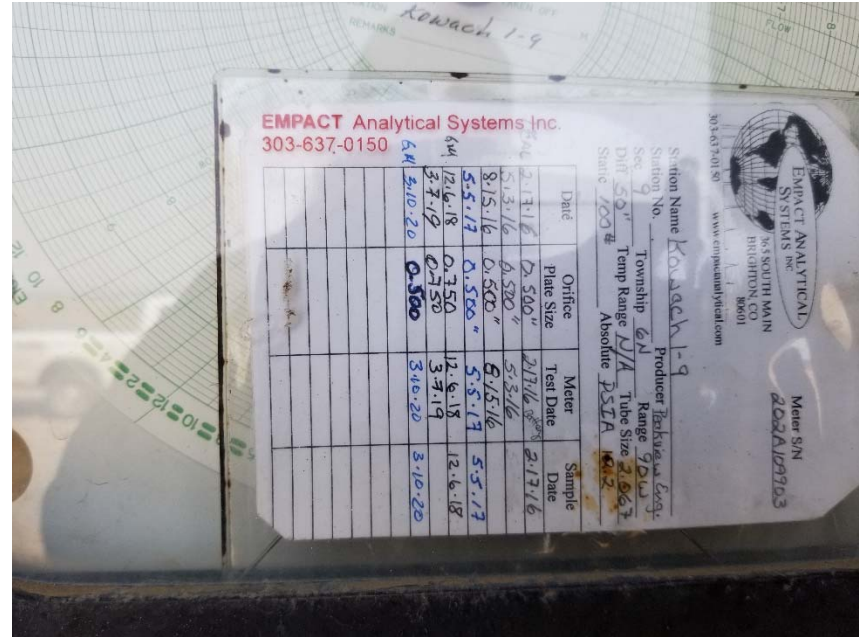 Kowach 1-9
REMARKS
FLOW
EMPACT Analytical Systems Inc.
303-637-0150
EMPACT ANALYTICAL
SYSTEMS INC
365 SOUTH MAIN
BRIGHTON, CO
80601
303-637-0150 www.empactanalytical.com
Meter S/N
202A109903
Station Name Kowach 1-9
Station No. Producer
Sec 9 Township 6N Range 90W
Diff 50" Temp Range N/A Tube Size 2.067
Static 100# Absolute PSIA 12.2
Date Orifice Plate Size Meter Test Date Sample Date
2.17.16 0.500" 2.17.16 2.17.16
5.3.16 0.500" 5.3.16
8.15.16 0.500" 8.15.16
5.5.17 0.500" 5.5.17 5.5.17
GM 12.6.18 0.750 12.6.18 12.6.18
3.7.19 0.750 3.7.19
GM 3.10.20 0.500 3.10.20 3.10.20